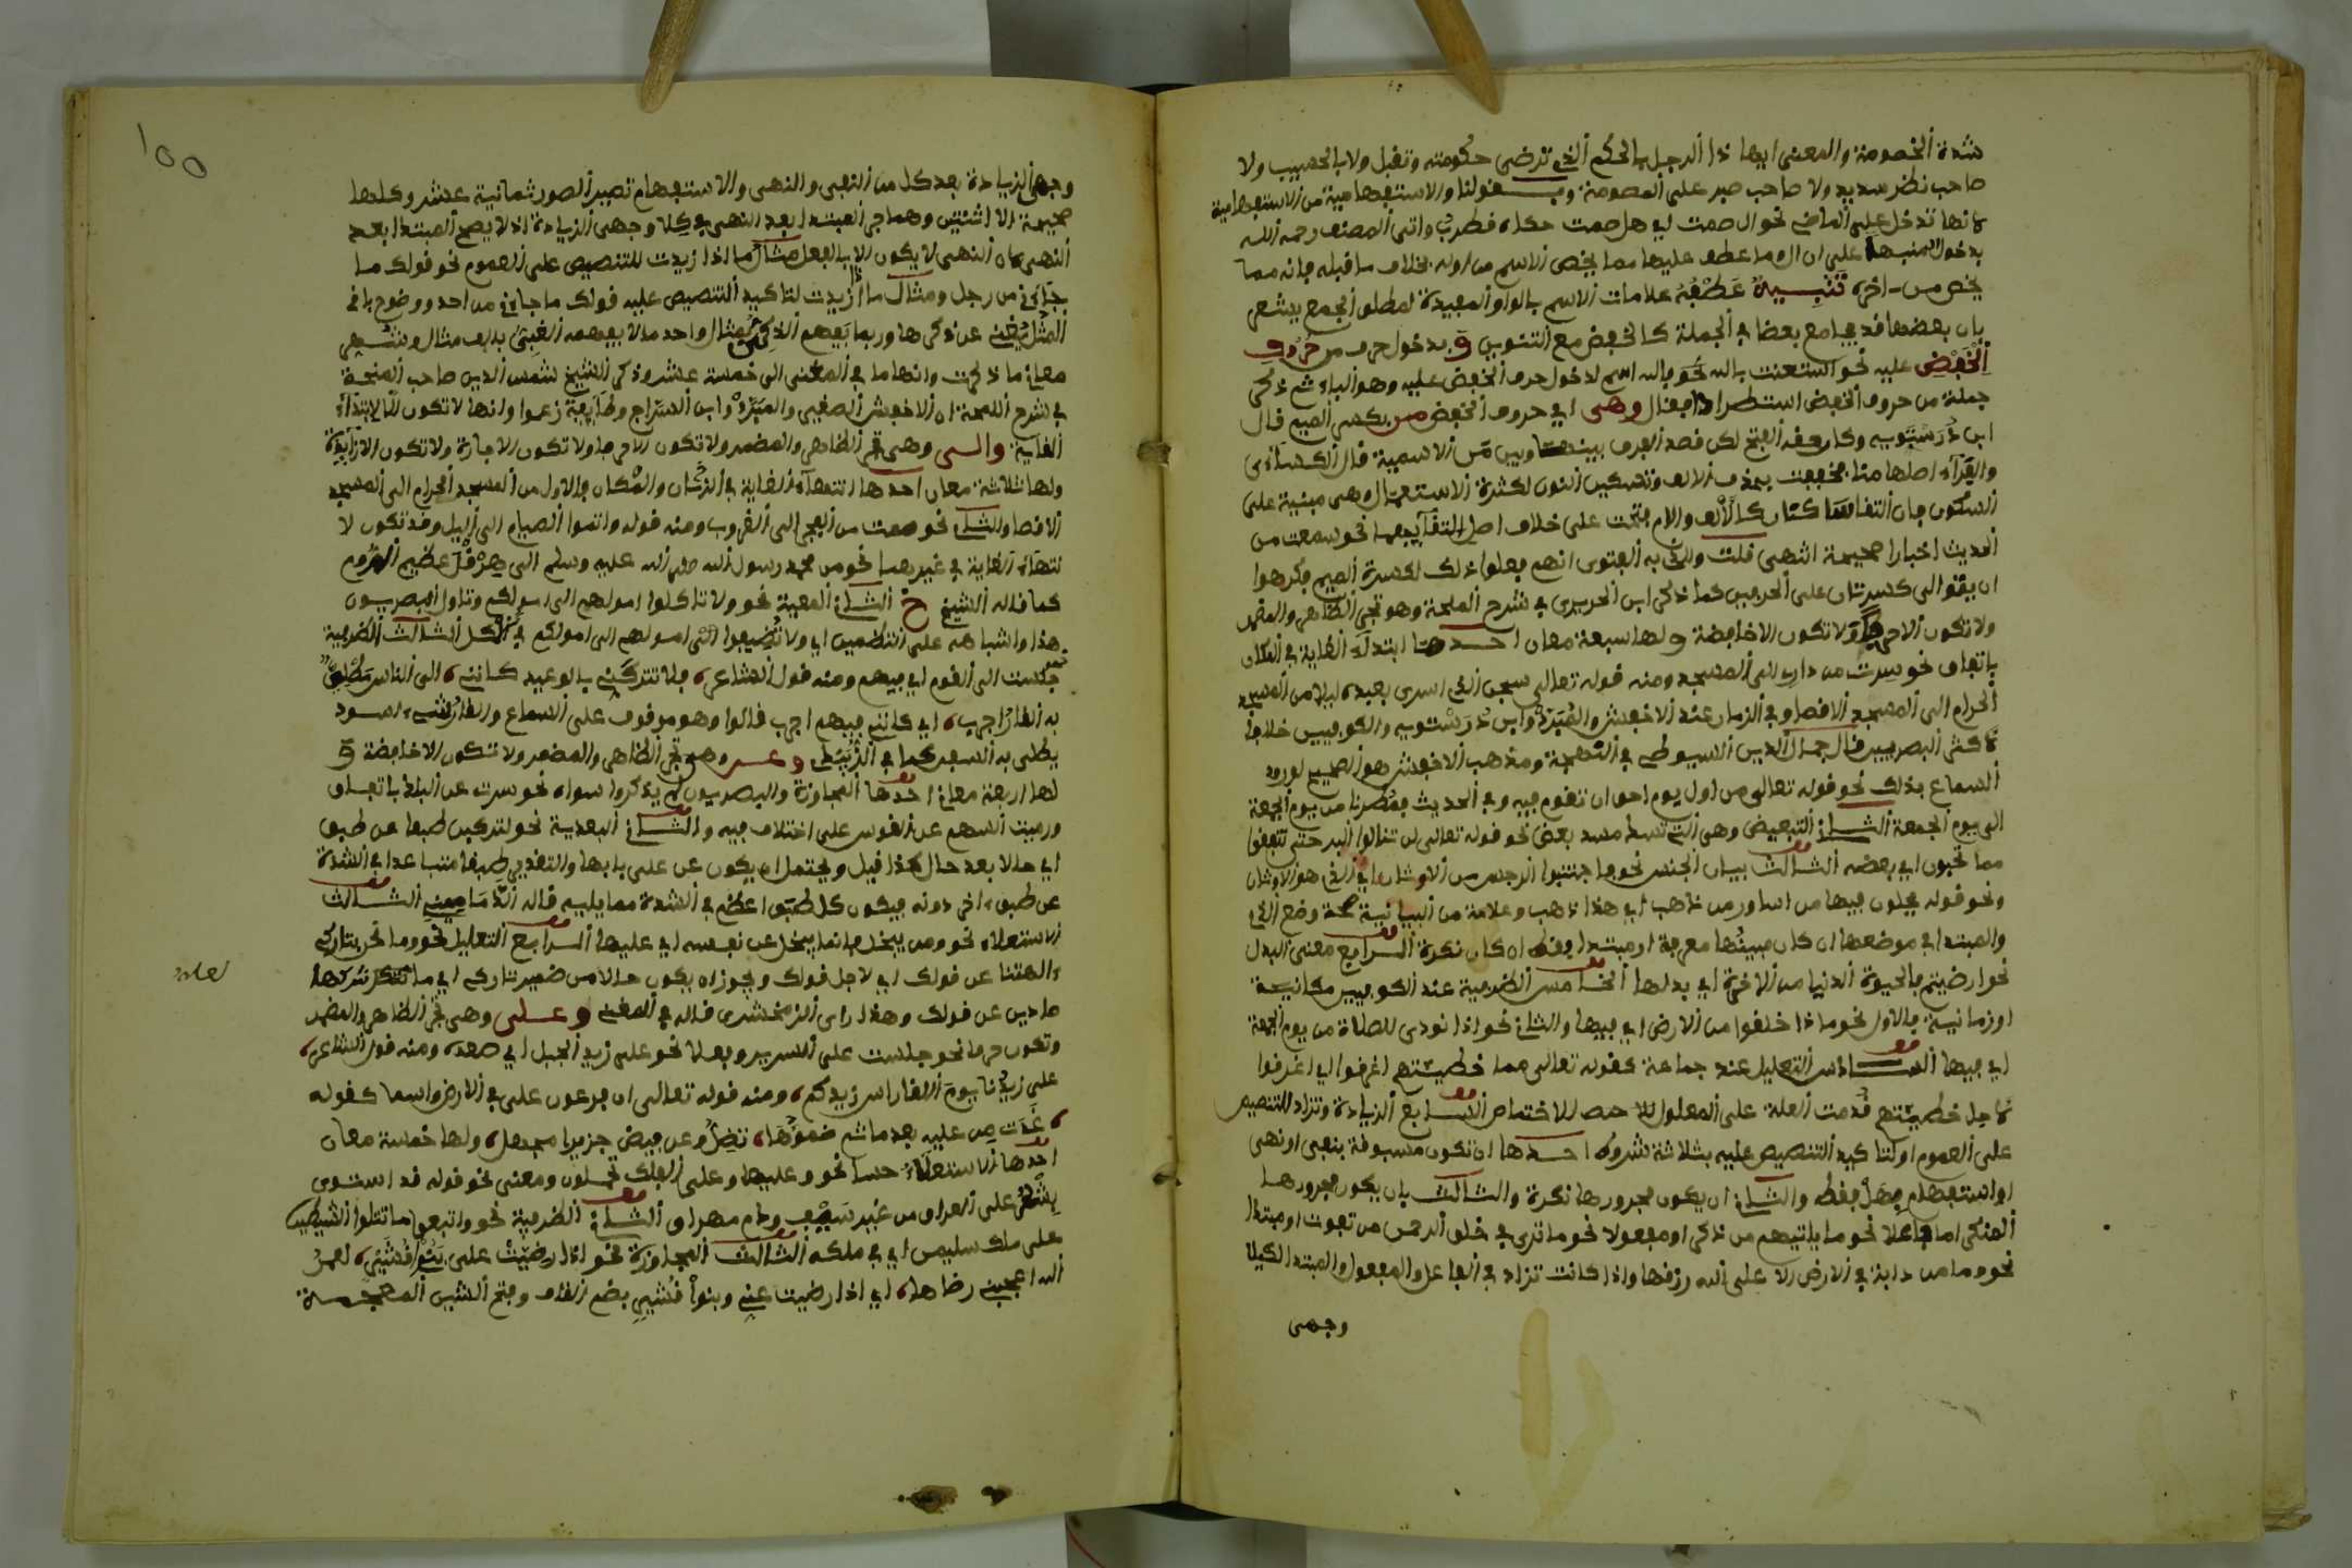 شدة الخصومة والمعنى ايها ذا الرجل بالحكم الذي ترضى حكومته وتقبل ولا بالحسيب ولا
صاحب نظر سديد ولا صاحب صبر على الخصومة من الاستفهامية
فانها تدخل على الماضي نحو ال حكاه قطرب واتى المصنف رحمه الله
على ان ال وما عطف عليها مما يخص الاسم من اوله بخلاف ما قبله فانه مما
يخص من اخره تنبيه عطفه علامات الاسم بالواو المفيدة لمطلق الجمع يشعر
بان بعضها قد يجامع بعضا في الجملة كالخفض مع التنوين و بدخول حرف من حروف
الخفض عليه نحو استعنت بالله نحو بالله اسم لدخول حرف الخفض عليه وهو الباء ثم ذكر
جملة من حروف الخفض استطرادا فقال وهي اي حروف الخفض من بكسر الميم قال
ابن درستويه وكان حقه الفتح لكن قصد الفرق بينها وبين من الاسمية قال الكسائي
والفراء اصلها منا فخففت بحذف الالف وتسكين النون لكثرة الاستعمال وهي مبنية على
السكون فان التقا ساكنان كالالف والام فتحت على خلاف اصل التقايهما نحو سمعت من
الحديث اخبارا صحيحة انتهى قلت والذي به الفتوى انهم فعلوا ذلك لكسرة الميم فكرهوا
ان يتوالى كسرتان على الحرفين كما ذكر ابن الحريري في شرح الملحة وهو تجر الظاهر والمضمر
ولا تكون الا حرفا ولا تكون الا خافضة ولها سبعة معان احدها ابتداء الغاية في المكان
باتفاق نحو سرت من دارك الى المسجد ومنه قوله تعالى سبحن الذي اسرى بعبده ليلا من المسجد
الحرام الى المسجد الاقصا وفي الزمان عند الاخفش والمبرد وابن درستويه والكوفيين خلافا
لاكثر البصريين قال جمال الدين السيوطي في ومذهب الاخفش هو الصحيح لورود
السماع بذلك نحو قوله تعالى من اول يوم احق ان تقوم فيه وفي الحديث فمطرنا من يوم الجمعة
الى يوم الجمعة الثاني التبعيض وهي التي تسد مسد بعض نحو قوله تعالى لن تنالوا البر حتى تنفقوا
مما تحبون اي بعضه الثالث بيان الجنس نحو فاجتنبوا الرجس من الاوثان اي الذي هو الاوثان
ونحو قوله يحلون فيها من اساور من ذاهب اي هذا ذهب وعلامة من البيانية صحة وضع الذي
والمبتدا في موضعها ان كان مبينها معرفة او مبتدا فقط ان كان نكرة الرابع معنى البدل
نحو ارضيتم بالحيوة الدنيا من الاخرة اي بدلها الخامس الظرفية عند الكوفيين مكانية
او زمانية فالاول نحو ماذا خلقوا من الارض اي فيها والثاني نحو اذا نودى للصلاة من يوم الجمعة
اي فيها السادس التعليل عند جماعة كقوله تعالى مما خطيئتهم اغرقوا اي اغرقوا
لاجل خطيئتهم قدمت العلة على المعلول للاختصاص السابع الزيادة وتزاد للتنصيص
على العموم او لتاكيد التنصيص عليه بثلاثة شروط احدها ان تكون مسبوقة بنفي او نهي
او استفهام بهل فقط والثاني ان يكون مجرورها نكرة والثالث بان يكون مجرورها
المنكر اما فاعلا نحو ما ياتيهم من ذكر او مفعولا نحو ما ترى في خلق الرحمن من تفوت او مبتدا
نحو وما من دابة في الارض الا على الله رزقها واذا كانت تزاد في الفاعل والمفعول والمبتدا
وجهى
١٥٥
وجهى الزيادة بعد كل من النفي والنهي والاستفهام تصير الصور ثمانية عشر وكلها
صحيحة الا اثنتين وهما جر المبتدا بعد النهي في كلا وجهى الزيادة اذ لا يصح المبتدا بعد
النهي فان النهي لا يكون الا بالفعل مثال ما اذا زيدت للتنصيص على العموم نحو قولك ما
جاني من رجل ومثال ما زيدت لتاكيد التنصيص عليه قولك ما جاني من احد ووضوح باقي
المثل يغني عن ذكرها وربما يفهم الذكي بمثال واحد ما لا يفهمه الغبي بالف مثال
معاني ما ذكرت وانهاها في المغني الى خمسة عشر وذكر الشيخ شمس الدين صاحب المنحة
في شرح اللمحة ان الاخفش الصغير والمبرد وابن السراج وطايفة زعموا وانها لا تكون الا لابتداء
الغاية والى وهي تجر الظاهر والمضمر ولا تكون الا حرفا ولا تكون الا جارة ولا تكون الا زايدة
ولها ثلاثة معان احدها انتهاء الغاية في الزمان والمكان فالاول من المسجد الحرام الى المسجد
الاقصا والثاني نحو صمت من الفجر الى الغروب ومنه قوله واتموا الصيام الى اليل وقد تكون لا
نتهاء الغاية في غيرهما نحو من محمد رسول الله صلى الله عليه وسلم الى هرقل عظيم الروم
كما قاله الشيخ خ الثاني المعية نحو ولا تاكلوا امولهم الى امولكم وتاول البصريون
هذا واشباهه على التضمين اي ولا تضيفوا امولهم الى امولكم في الاكل الثالث الظرفية
جلست الى القوم اي فيهم ومنه قول الشاعر، فلا تتركني بالوعيد كانني، الى الناس مطلي
به القار اجرب، اي كانني فيهم اجرب قالوا وهو موقوف على السماع والقار شيء اسود
يطلى به السفن كما في وعن وهي تجر الظاهر والمضمر ولا تكون الا خافضة و
لها اربعة معان احدها المجاوزة والبصريون لم يذكروا سواه نحو سرت عن البلد باتفاق
ورميت السهم عن القوس على اختلاف فيه والثاني البعدية نحو لتركبن طبقا عن طبق
اي حالا بعد حال هكذا قيل ويحتمل ان يكون عن على بابها والتقدير طبقا متباعدا في الشدة
عن طبق اخر دونه فيكون كل طبق اعظم في الشدة مما يليه قاله الدماميني الثالث
الاستعلاء نحو ومن يبخل فانما يبخل عن نفسه اي عليها الرابع التعليل نحو وما نحن بتاركي
ءالهتنا عن قولك اي لاجل قولك ويجوز ان يكون حالا من ضمير تاركي اي ما نتركها
صادين عن قولك وهذا راى الزمخشري قاله في المغني وعلى وهي تجر الظاهر والمضمر
وتكون حرفا نحو جلست على السرير وفعلا نحو على زيد الجبل اي صعده ومنه قول الشاعر،
على زيدنا يوم النقا راس زيدكم، ومنه قوله تعالى ان فرعون على في الارض واسما كقوله
، غدت من عليه بعد ما تم ضموها، تصل وعن قيض جزيرا مجهل، ولها خمسة معان
احدها الاستعلاء حسا نحو وعليها وعلى الفلك تحملون ومعنى نحو قوله قد استوى
بشر على العراق من غير سيف ودم مهراق الثاني الظرفية نحو واتبعوا ما تتلوا الشيطين
على ملك سليمن اي في ملكه الثالث المجاوزة نحو اذا رضيت على بنوا قشير، لعمر
الله اعجبني رضاها، اي اذا رضيت عني وبنوا قشير بضم القاف وفتح الشين المعجمة